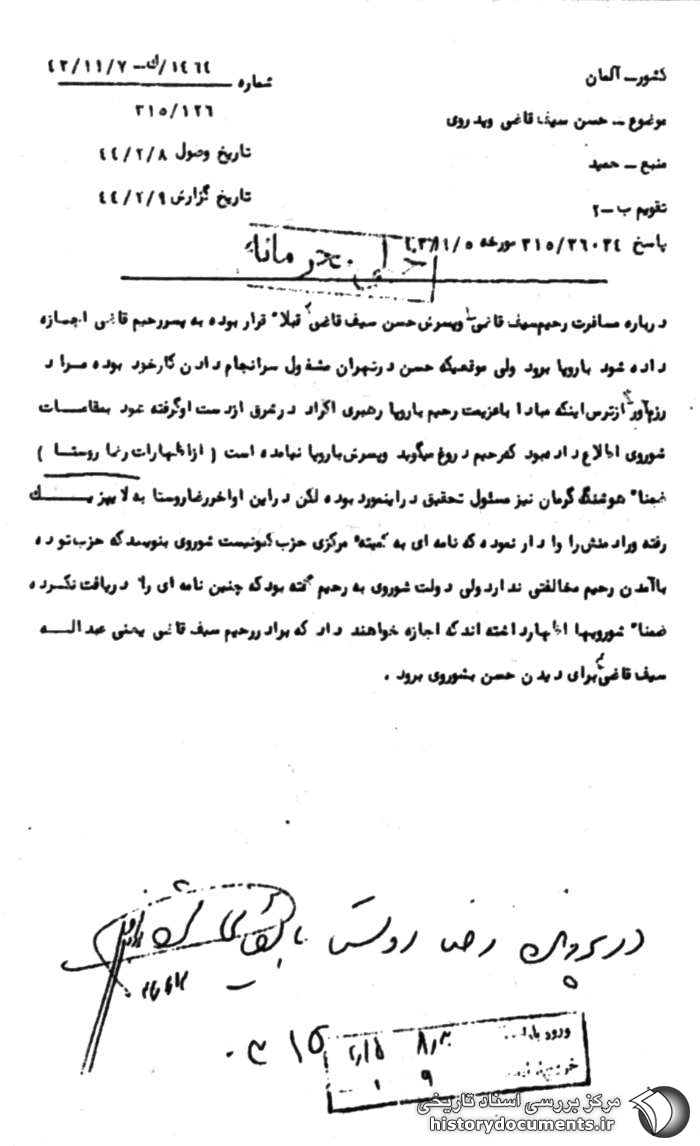 کشور ـ آلمان
شماره ۱٤٦٤/ك ـ ٤٣/۱۱/٧
۳۱٥/۱۲٦
موضوع ـ حسن سیف قاضی وپدروی
تاریخ وصول ٤٤/۲/۸
منبع ـ حمید
تاریخ گزارش ٤٤/۲/۹
تقویم ب ـ ۲
پاسخ ۳۱٥/۲٦۰۲٤ مورخه
خیلی محرمانه
درباره مسافرت رحیم سیف قاضی وپسرش حسن سیف قاضی قبلا" قرار بوده به پسررحیم قاضی اجازه
داده شود باروپا برود ولی موقعیکه حسن درتهران مشغول سرانجام دادن کارخود بوده مراد
رزم‌آور ازترس اینکه مبادا باعزیمت رحیم باروپا رهبری اکراد درشرق ازدست اوگرفته شود بمقامات
شوروی اطلاع داده بود که رحیم دروغ میگوید وپسرش باروپا نیامده است ( ازاظهارات رضا روستا )
ضمنا" هوشنگ گرمان نیز مسئول تحقیق دراینمورد بوده لکن دراین اواخررضاروستا به لایپزیك
رفته ورادمنش را وادار نموده که نامه ای به کمیته مرکزی حزب کمونیست شوروی بنویسد که حزب توده
باآمدن رحیم مخالفتی ندارد ولی دولت شوروی به رحیم گفته بود که چنین نامه ای را دریافت نکرده
ضمنا" شورویها اظهارداشته اند که اجازه خواهند داد که برادررحیم سیف قاضی یعنی عبداله
سیف قاضی برای دیدن حسن بشوروی برود .
در پرونده رضا روستا بایگانی شود
ورود به
مرکز بررسی اسناد تاریخی
historydocuments.ir